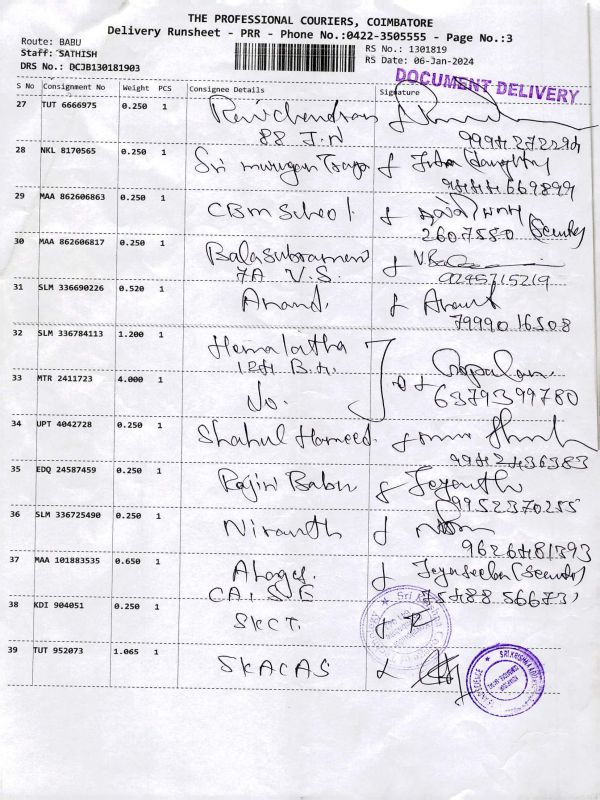 THE PROFESSIONAL COURIERS, COIMBATORE
Delivery Runsheet - PRR - Phone No.:0422-3505555 - Page No.:3
Route: BABU
Staff: SATHISH
DRS No.: DCJB130181903
RS No.: 1301819
RS Date: 06-Jan-2024
DOCUMENT DELIVERY
S No Consignment No Weight PCS Consignee Details Signature
27 TUT 6666975 0.250 1 Ravichendran
88 J.N
28 NKL 8170565 0.250 1 Sri murugan
29 MAA 862606863 0.250 1 CBM School
2607580
30 MAA 862606817 0.250 1 Balasubramani
7A V.S.
31 SLM 336690226 0.520 1 Anand.
79990 16508
32 SLM 336784113 1.200 1 Hemalatha
33 MTR 2411723 4.000 1 Do. Gopalan
6379399780
34 UPT 4042728 0.250 1 Shahul Hameed.
9942436383
35 EDQ 24587459 0.250 1 Rajini Babu Jeyanth
9952370255
36 SLM 336725490 0.250 1 Niranth
9626481393
37 MAA 101883535 0.650 1 Alagar
38 KDI 904051 0.250 1 SKCT.
39 TUT 952073 1.065 1 SKACAS